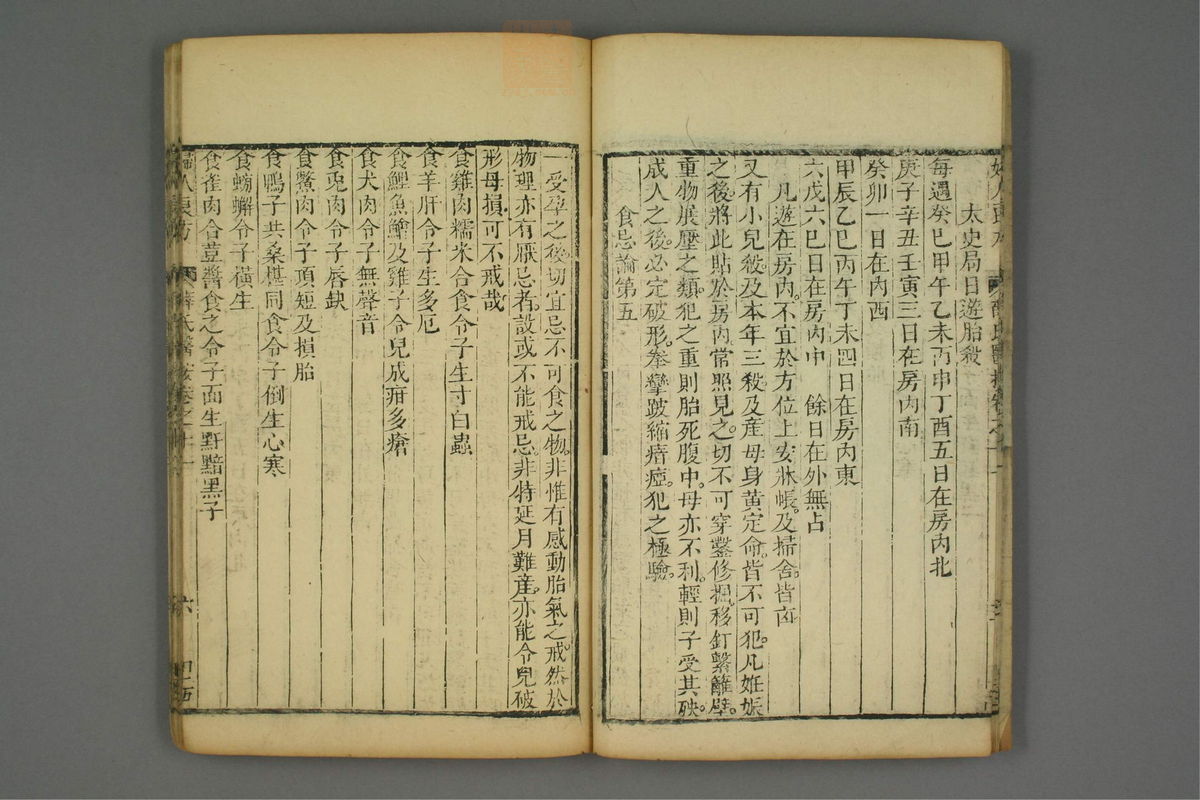 太史局日遊胎殺
每遇癸巳甲午乙未丙申丁酉五日在房內北
庚子辛丑壬寅三日在房內南
癸卯一日在內西
甲辰乙巳丙午丁未四日在房內東
六戊六巳日在房內中　餘日在外無占
凡遊在房內。不宜於方位上安牀帳。及掃舍。皆凶
又有小兒殺。及本年三殺及產母身黃定命。皆不可犯。凡姙娠
之後。將此貼於房內。常照見之。切不可穿鑿修掘。移釘繫籬壁。
重物展壓之類。犯之重則胎死腹中。母亦不利。輕則子受其殃。
成人之後。必定破形。拳攣跛縮瘖瘂。犯之極驗。
食忌論第五
一受孕之後。切宜忌不可食之物。非惟有感動胎氣之戒。然於
物理亦有厭忌者。設或不能戒忌。非特延月難產。亦能令兒破
形母損。可不戒哉
食雞肉糯米合食令子生寸白蟲
食羊肝令子生多厄
食鯉魚鱠及雞子令兒成疳多瘡
食犬肉令子無聲音
食兎肉令子唇缺
食鱉肉令子項短及損胎
食鴨子共桑椹同食令子倒生心寒
食螃蠏令子橫生
食雀肉合荳醬食之令子面生䵟黯黑子
婦人良方　薛氏醫按卷之　六